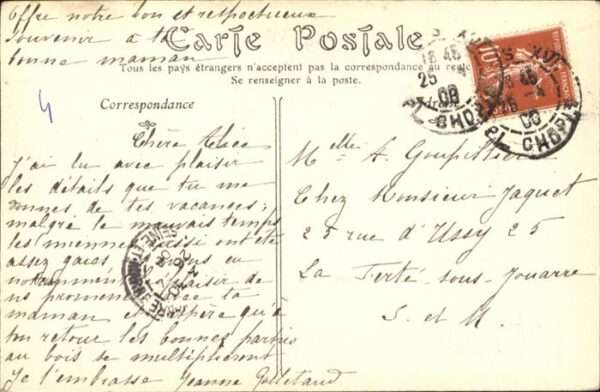 Offre notre bon et respectueux
souvenir à ta
bonne maman
Carte Postale
Tous les pays étrangers n'acceptent pas la correspondance au recto
Se renseigner à la poste.
Correspondance
Chère Alice
J'ai lu avec plaisir
les détails que tu me
donnes de tes vacances;
malgré le mauvais temps
les miennes aussi ont été
assez gaies
le plaisir de
nous promener avec ta
maman et j'espère qu'à
ton retour les bonnes parties
au bois se multiplieront
Je t'embrasse Jeanne
4
25
08
Melle A. Goupillière
Chez Monsieur Jaquet
25 rue d'Ussy 25
La Ferté-sous-Jouarre
S. et M.